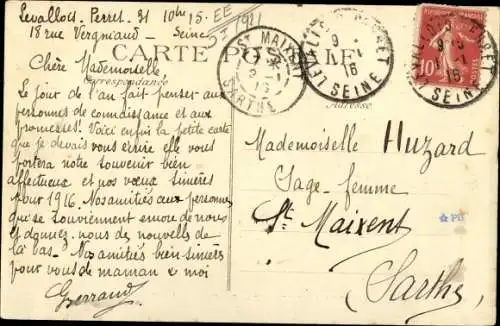 Levallois-Perret. 31 10bre 15.
18 rue Vergniaud - Seine
CARTE POSTALE
Correspondance
Adresse
Chère Mademoiselle,
Le jour de l'an fait penser aux
personnes de connaissance et aux
promesses! Voici enfin la petite carte
que je devais vous écrire elle vous
portera notre souvenir bien
affectueux et nos vœux sincères
pour 1916. Nos amitiés aux personnes
qui se souviennent encore de nous
et donnez-nous de nouvelles de
là bas. Nos amitiés bien sincères
pour vous de maman & moi
Mademoiselle Huzard
Sage-femme
St. Maixent
Sarthe
ST MAIXENT
SARTHE
LEVALLOIS-PERRET
SEINE
LEVALLOIS-PERRET
SEINE
10